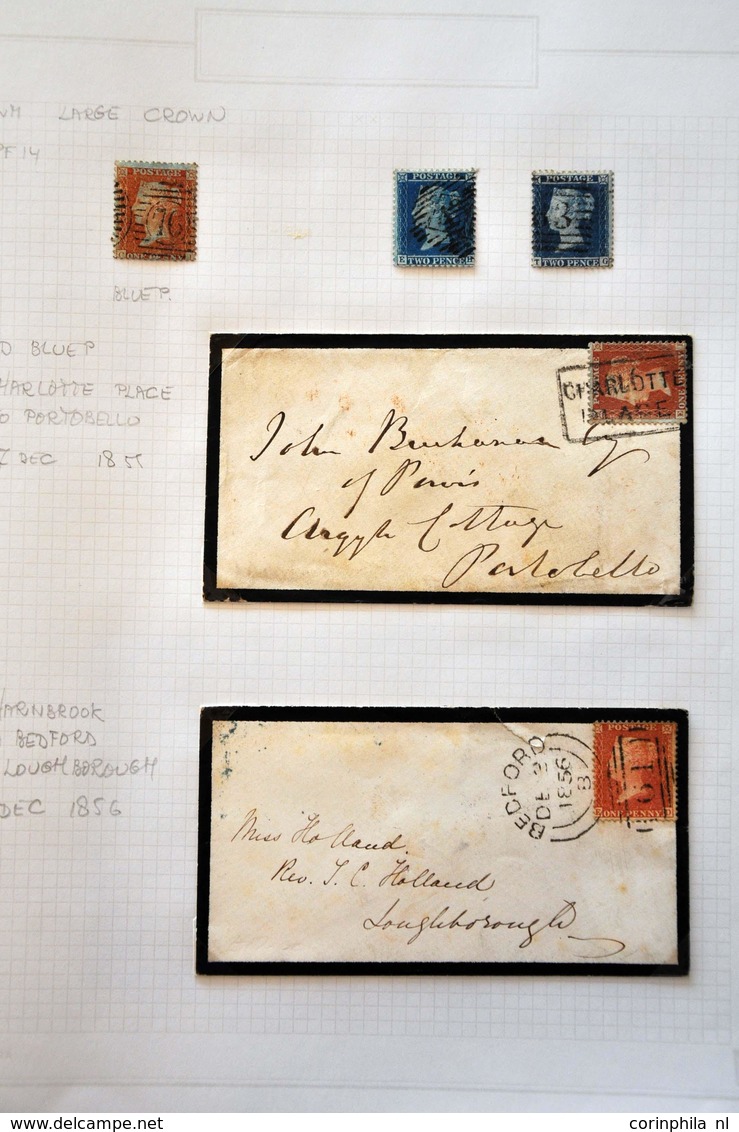 LARGE CROWN
14
POSTAGE
ONE PENNY
POSTAGE
TWO PENCE
E
POSTAGE
3
TWO PENCE
G
BLUEP.
BLUEP
CHARLOTTE PLACE
PORTOBELLO
7 DEC 1855
CHARLOTTE
PLACE
John Buchanan Esq
of Powis
Argyle Cottage
Portobello
BEDFORD
LOUGHBOROUGH
DEC 1856
POSTAGE
BEDFORD
DE 2
1856
B
ONE PENNY
Miss Holland.
Rev. J. C. Holland
Loughborough
delcampe.net
corinphila nl